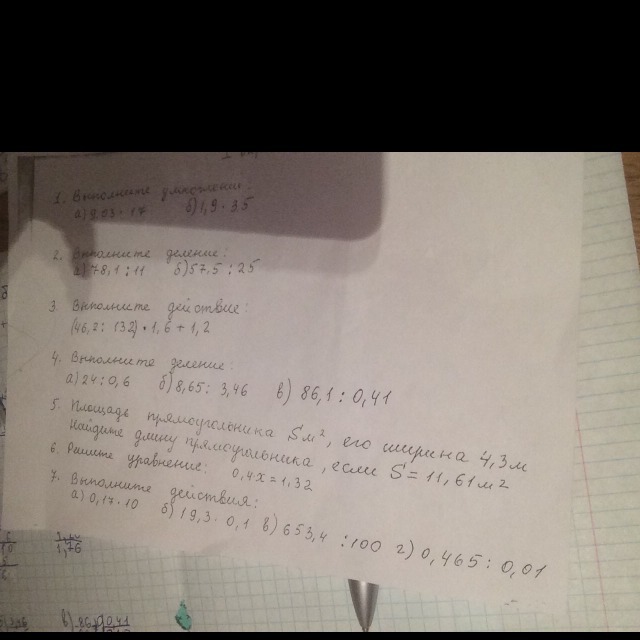 1. Выполните умножение:
а) 9,03 · 17 б) 1,9 · 3,5
2. Выполните деление:
а) 78,1 : 11 б) 57,5 : 25
3. Выполните действие:
(46,2 : 132) · 1,6 + 1,2
4. Выполните деление:
а) 24 : 0,6 б) 8,65 : 3,46 в) 86,1 : 0,41
5. Площадь прямоугольника S м², его ширина 4,3 м
Найдите длину прямоугольника, если S = 11,61 м²
6. Решите уравнение: 0,4·x = 1,32
7. Выполните действия:
а) 0,17 · 10 б) 19,3 · 0,1 в) 653,4 : 100 г) 0,465 : 0,01
1,76
в) 86 0,41